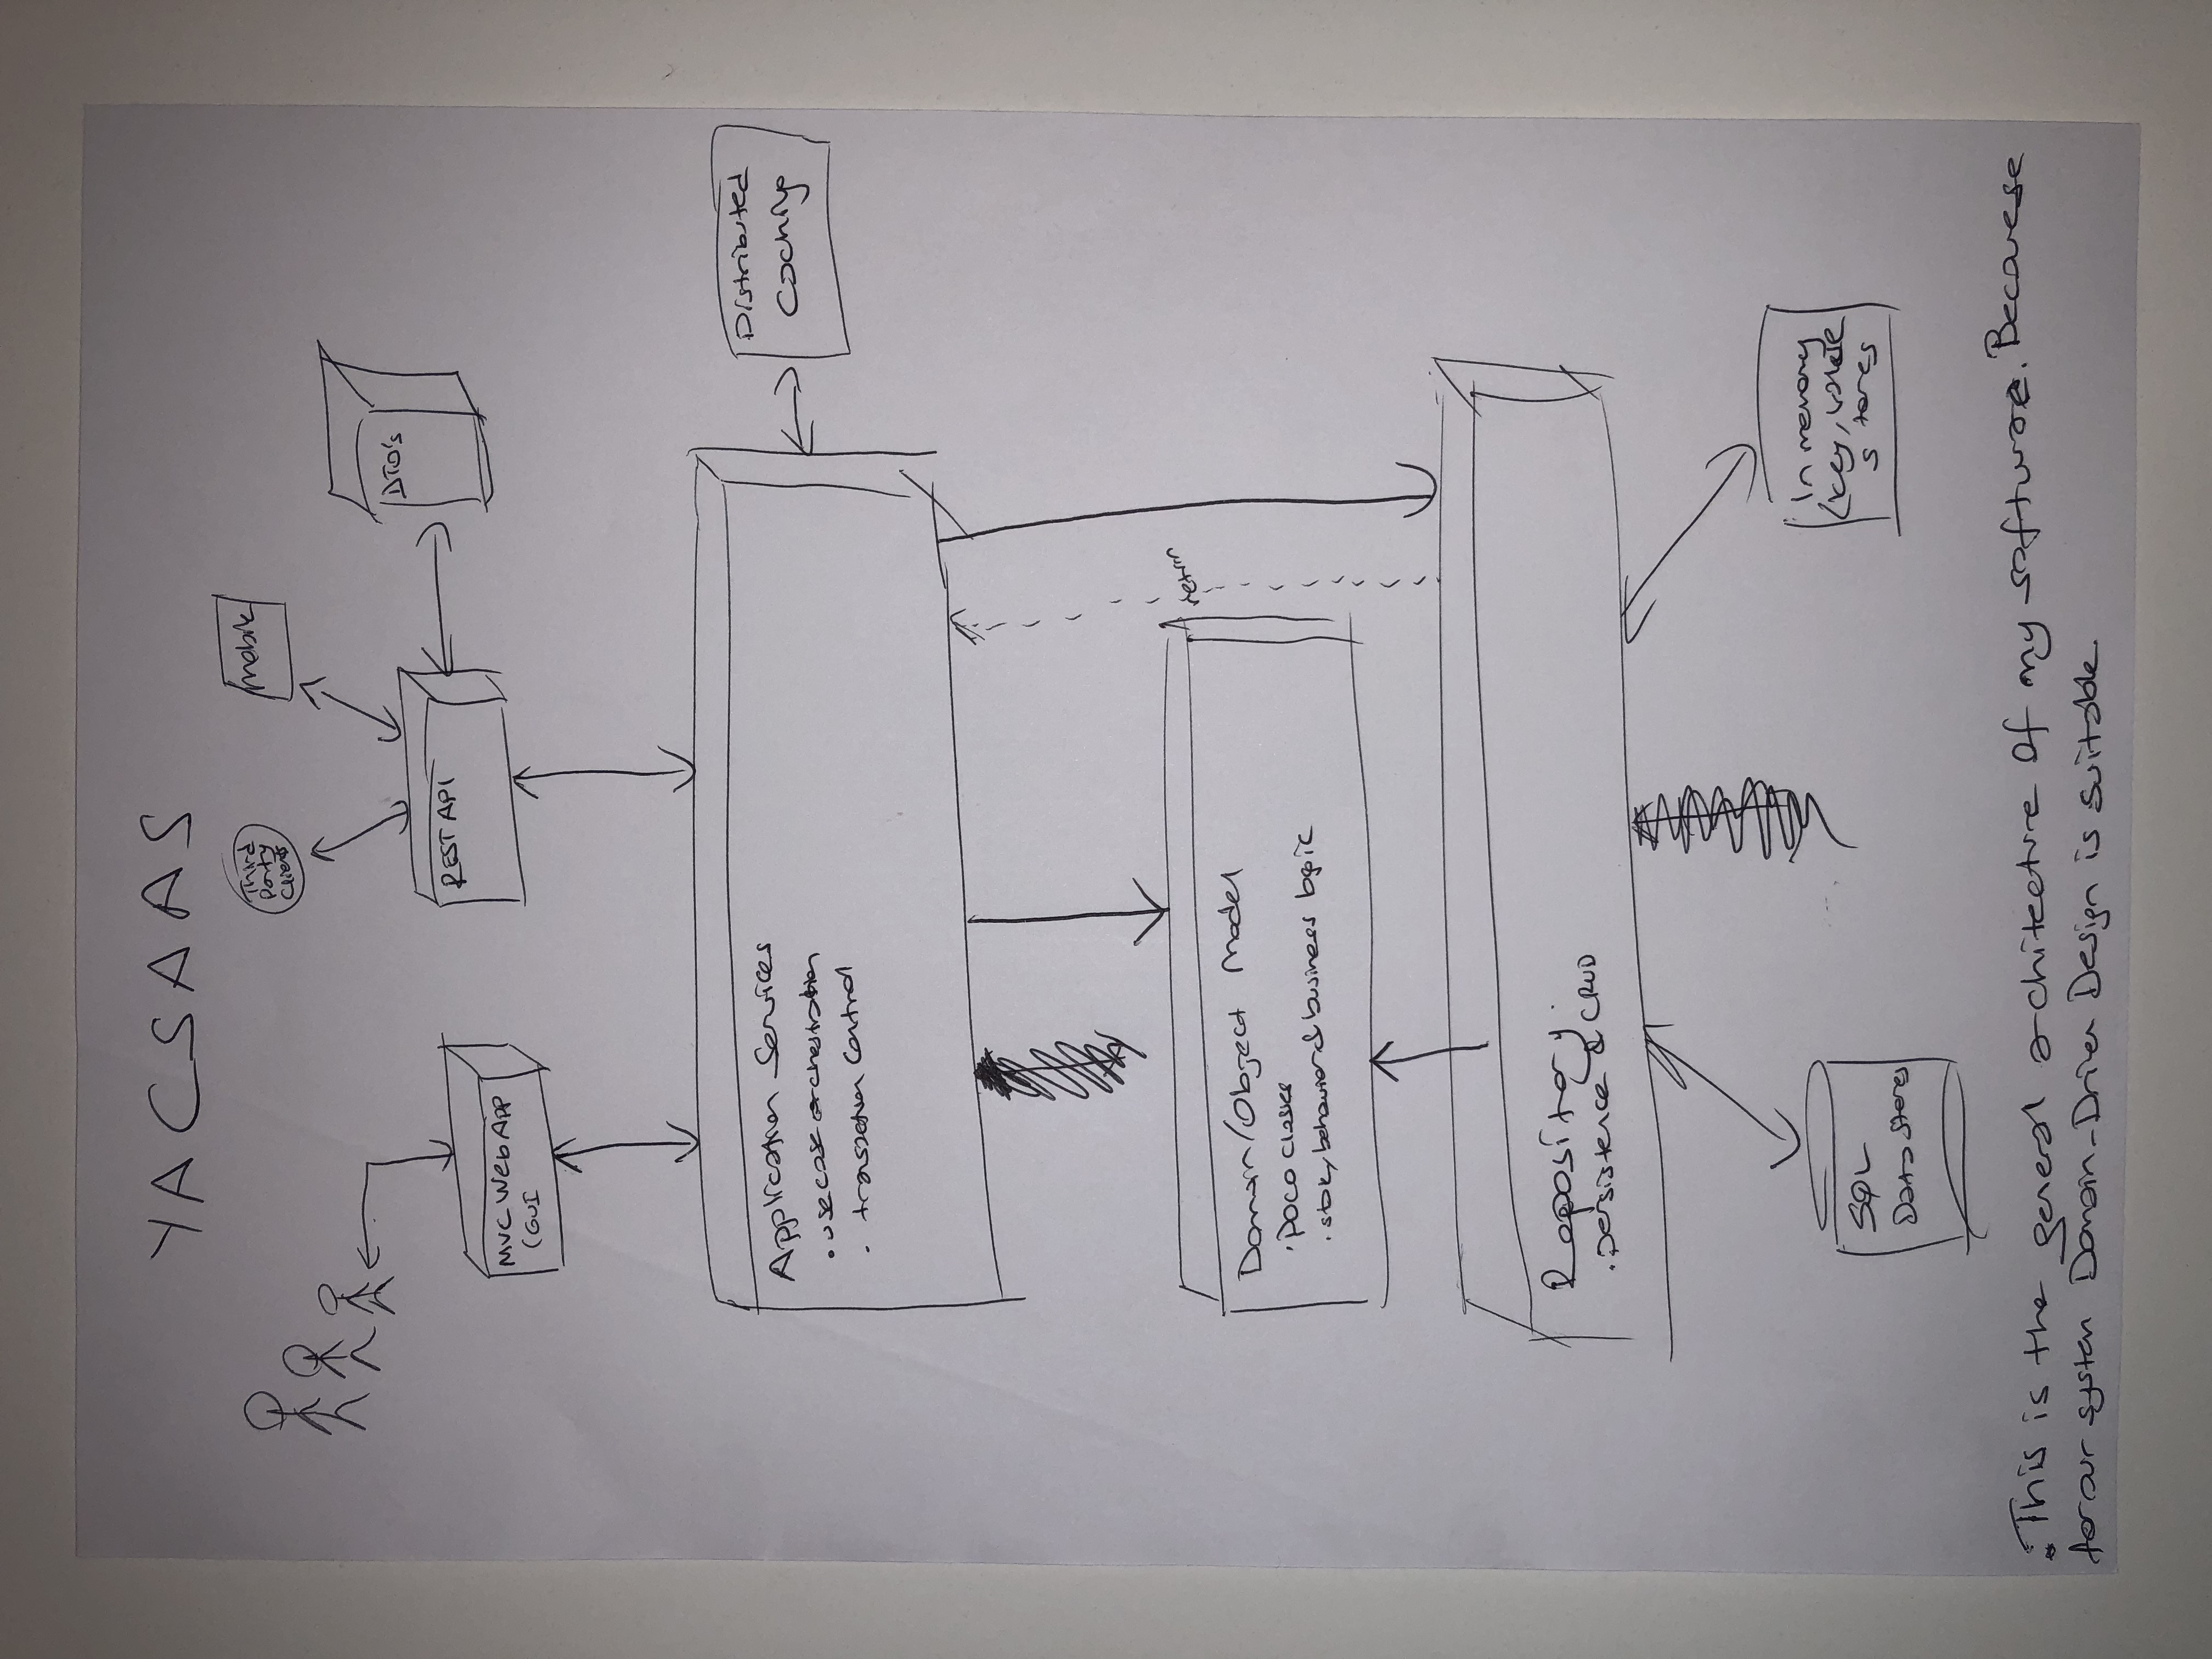 YACSAAS
Third
Party
Clients
Mobile
MVC Web APP
(GUI
REST API
DTO's
Application Services
• use case orchestration
• transaction control
Distributed
Caching
Domain/Object Model
• POCO classes
• state, behaviors & business logic
return
Repository
• persistence & CRUD
SQL
Data Stores
in memory
(key, value
stores
• This is the general architecture of my software. Because
for our system Domain-Driven Design is suitable